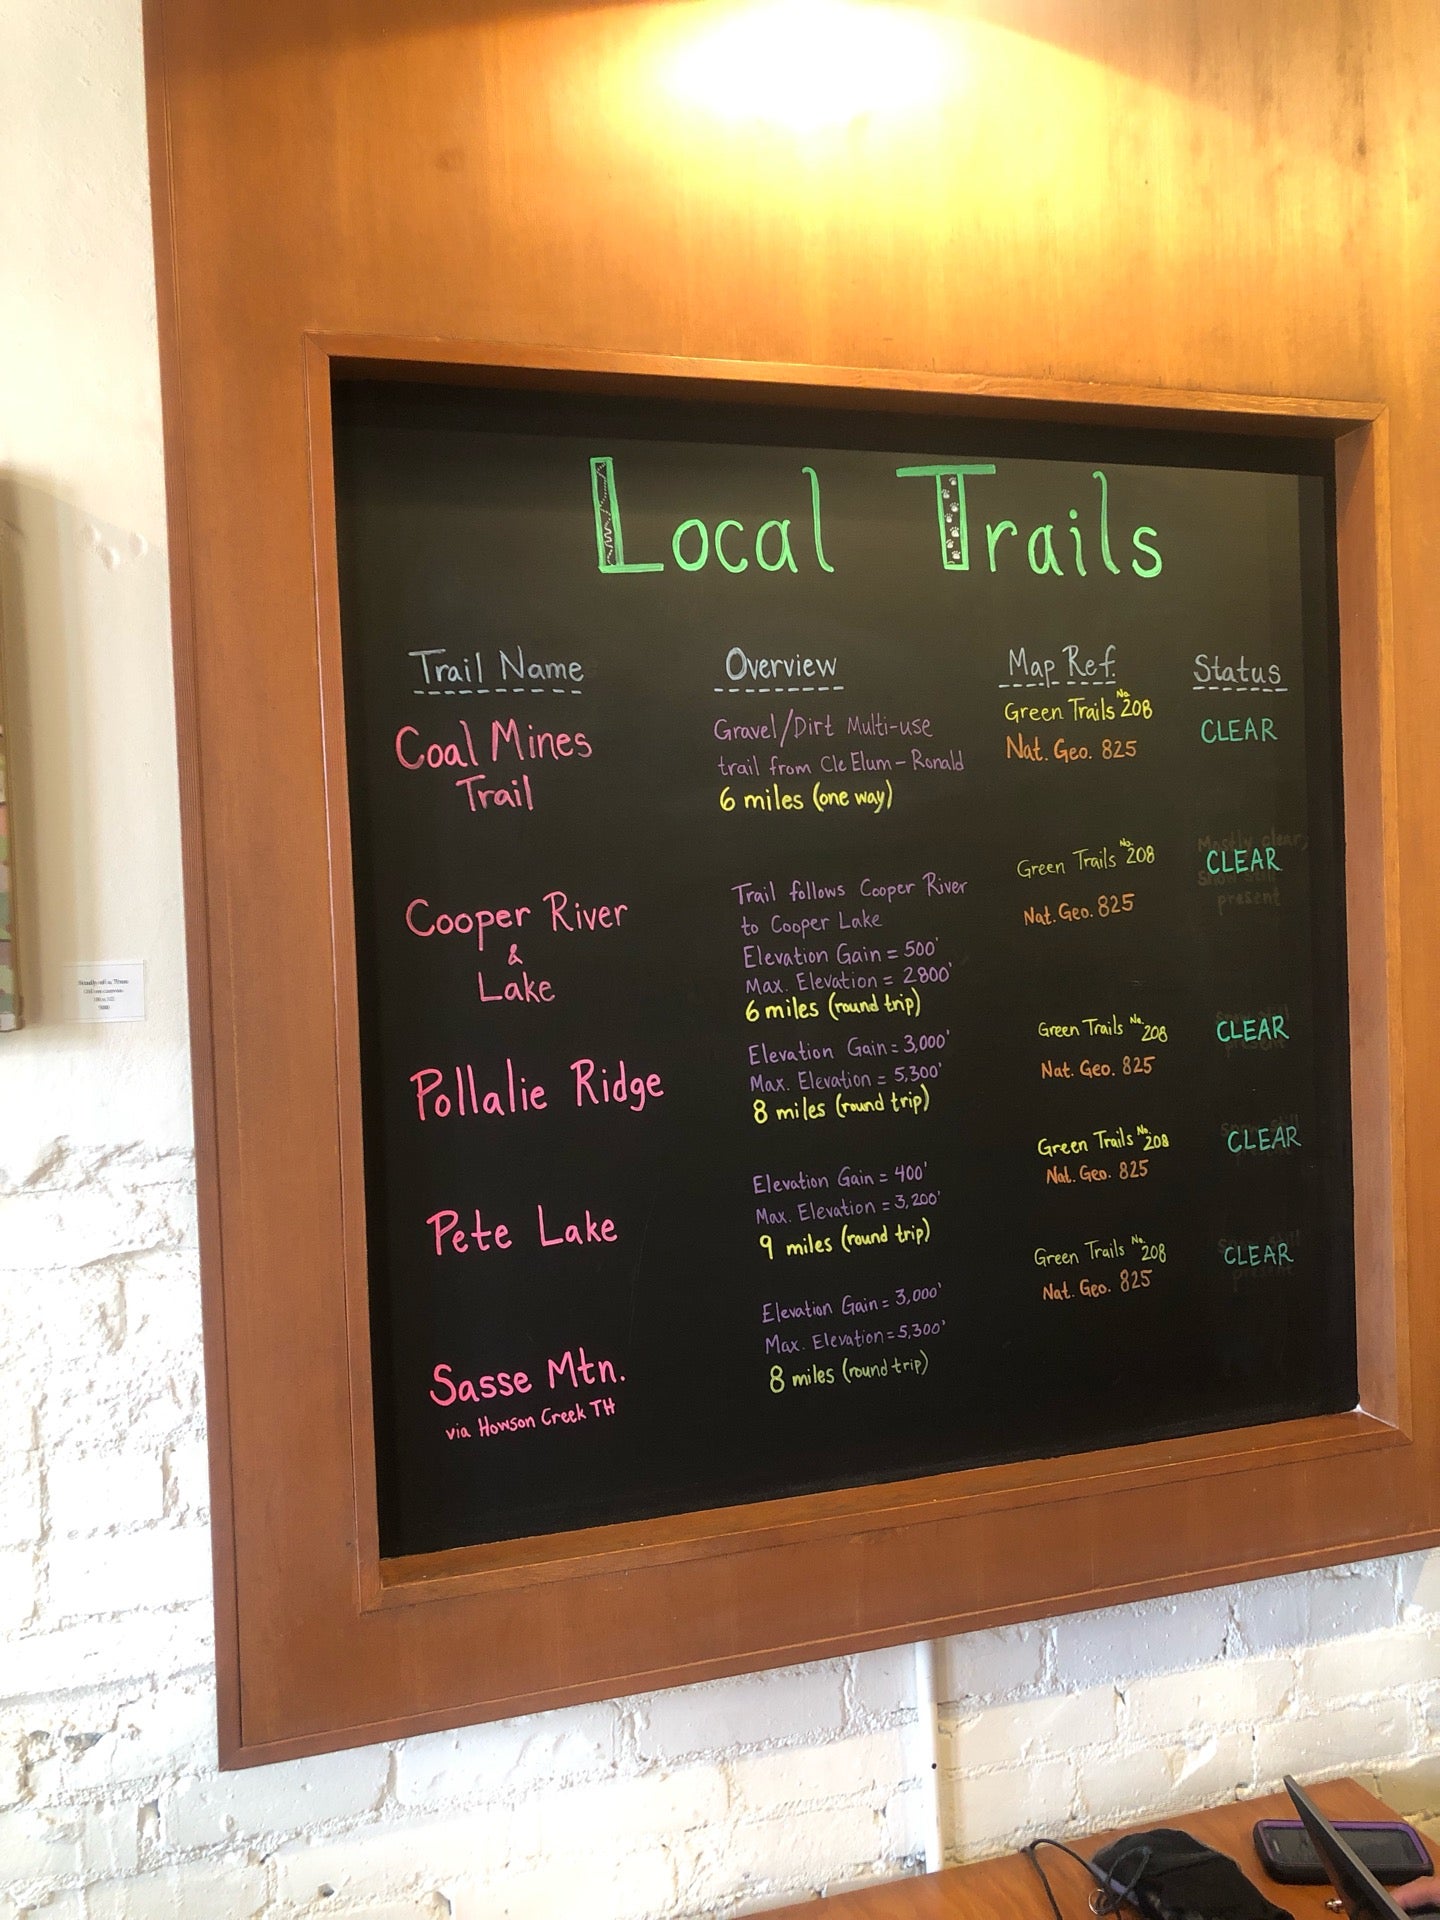 Local Trails
Trail Name
Overview
Map Ref.
Status
Coal Mines
Trail
Gravel/Dirt Multi-use
trail from Cle Elum - Ronald
6 miles (one way)
Green Trails No. 208
Nat. Geo. 825
CLEAR
Cooper River
&
Lake
Trail follows Cooper River
to Cooper Lake
Elevation Gain = 500'
Max. Elevation = 2800'
6 miles (round trip)
Green Trails No. 208
Nat. Geo. 825
Mostly clear,
CLEAR
snow still
present
Pollalie Ridge
Elevation Gain = 3,000'
Max. Elevation = 5,300'
8 miles (round trip)
Green Trails No. 208
Nat. Geo. 825
CLEAR
Pete Lake
Elevation Gain = 400'
Max. Elevation = 3,200'
9 miles (round trip)
Green Trails No. 208
Nat. Geo. 825
CLEAR
Sasse Mtn.
via Howson Creek TH
Elevation Gain = 3,000'
Max. Elevation = 5,300'
8 miles (round trip)
Green Trails No. 208
Nat. Geo. 825
CLEAR